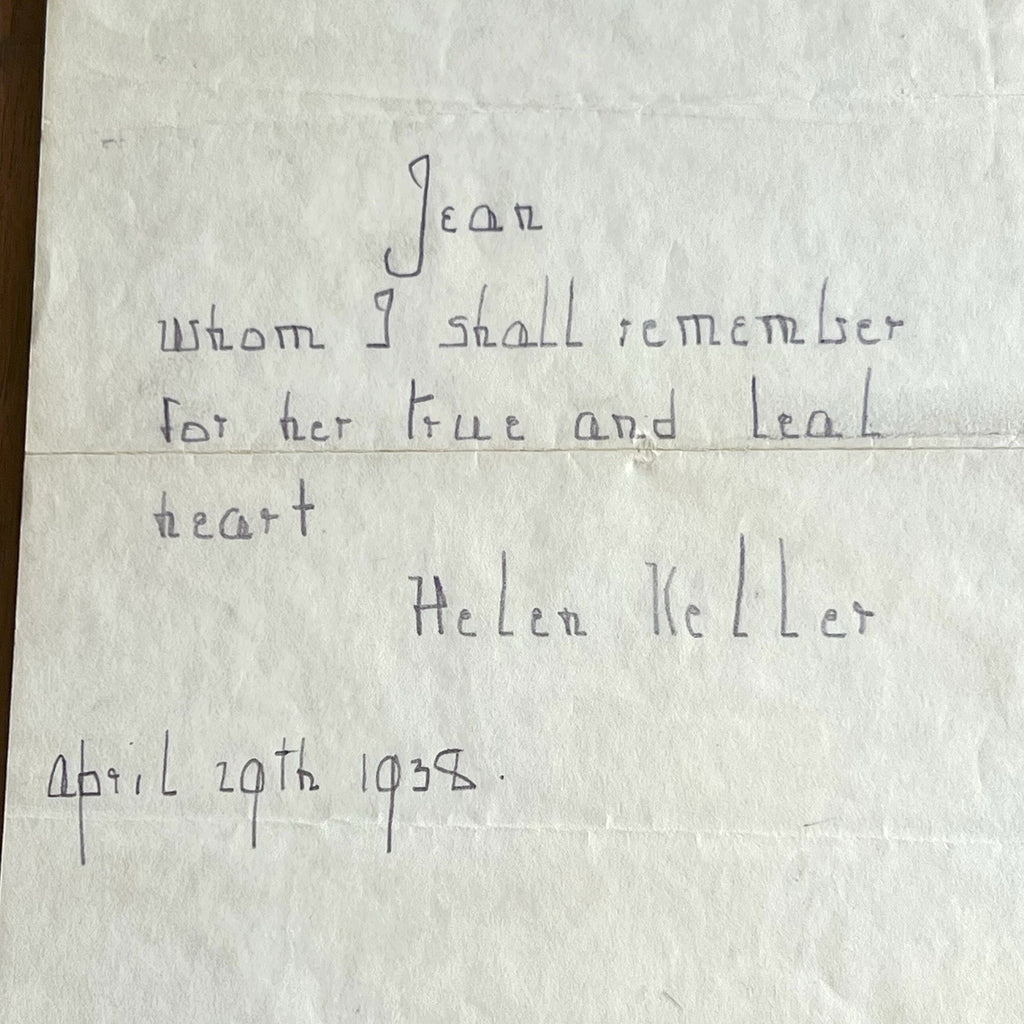 Jean
whom I shall remember
for her true and leal
heart
Helen Keller
april 29th 1938.